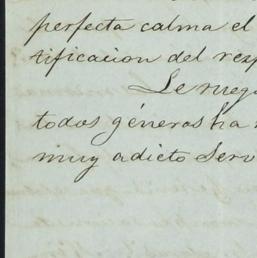 perfecta calma el
tificacion del resp
Le ruego
todos géneros ha
muy adicto Serv